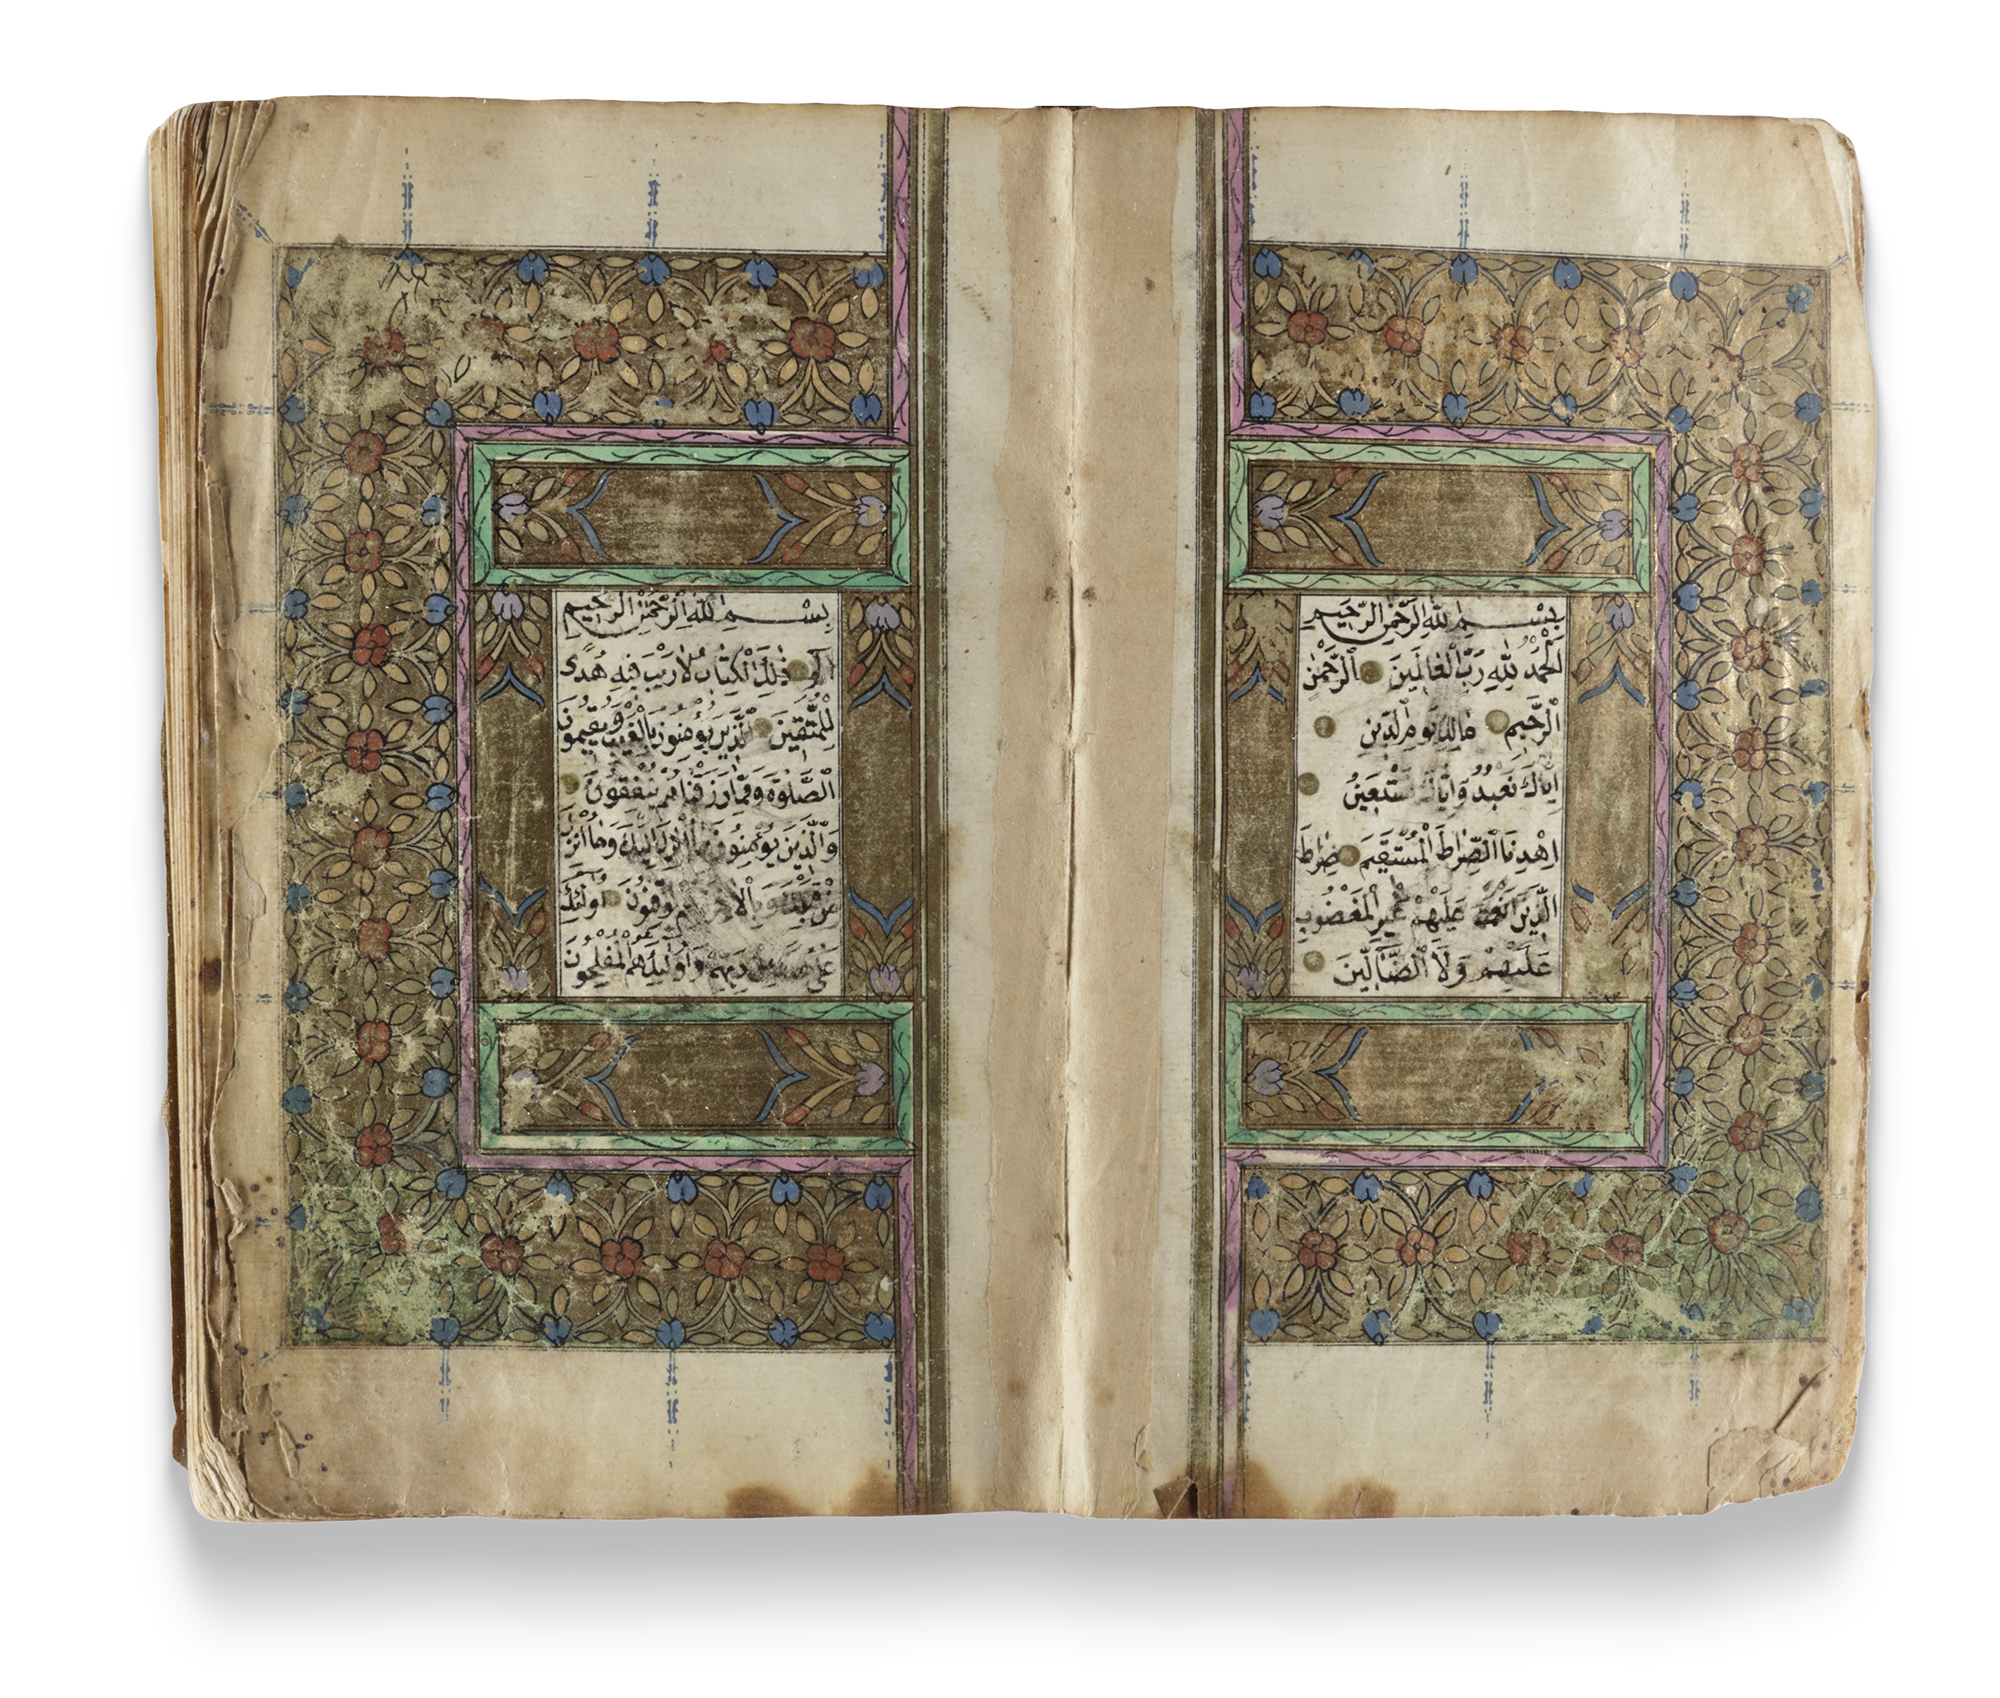 بِسْمِ اللّٰهِ الرَّحْمٰنِ الرَّحِيمِ
اَلْحَمْدُ لِلّٰهِ رَبِّ الْعَالَمِينَ اَلرَّحْمٰنِ
الرَّحِيمِ مَالِكِ يَوْمِ الدِّينِ
اِيَّاكَ نَعْبُدُ وَاِيَّاكَ نَسْتَعِينُ
اِهْدِنَا الصِّرَاطَ الْمُسْتَقِيمَ صِرَاطَ
الَّذِينَ اَنْعَمْتَ عَلَيْهِمْ غَيْرِ الْمَغْضُوبِ
عَلَيْهِمْ وَلَا الضَّالِّينَ
بِسْمِ اللّٰهِ الرَّحْمٰنِ الرَّحِيمِ
الٓمٓ ذٰلِكَ الْكِتَابُ لَا رَيْبَ فِيهِ هُدًى
لِلْمُتَّقِينَ اَلَّذِينَ يُؤْمِنُونَ بِالْغَيْبِ وَيُقِيمُونَ
الصَّلٰوةَ وَمِمَّا رَزَقْنَاهُمْ يُنْفِقُونَ
وَالَّذِينَ يُؤْمِنُونَ بِمَا اُنْزِلَ اِلَيْكَ وَمَا اُنْزِلَ
مِنْ قَبْلِكَ وَبِالْاٰخِرَةِ هُمْ يُوقِنُونَ اُولٰئِكَ
عَلٰى رَبِّهِمْ وَاُولٰئِكَ هُمُ الْمُفْلِحُونَ